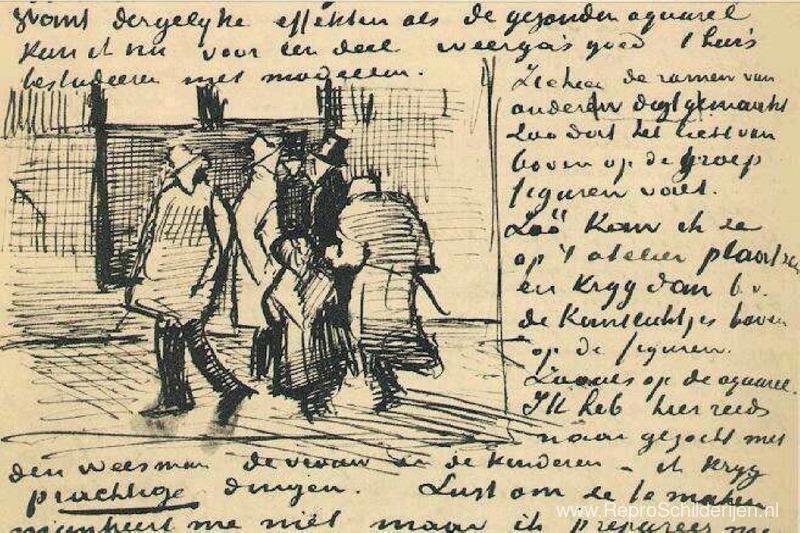 want dergelyke effekten als de gezonden aquarel
kan ik nu voor een deel weergas goed thuis
bestudeeren met modellen.
Zie hier de ramen van
onderen digt gemaakt
Zoo dat het licht van
boven op de groep
figuren valt.
Zóó kan ik ze
op 't atelier plaatsen
en kryg dan b.v.
de kantlichtjes boven
op de figuren.
Zooals op de aquarel.
Ik heb hier reeds
naar gezocht met
den weesman de vrouw en de kinderen – ik kryg
prachtige dingen. Lust om ze te maken
mankeert me niet maar ik prepareer me
www.ReproSchilderijen.nl